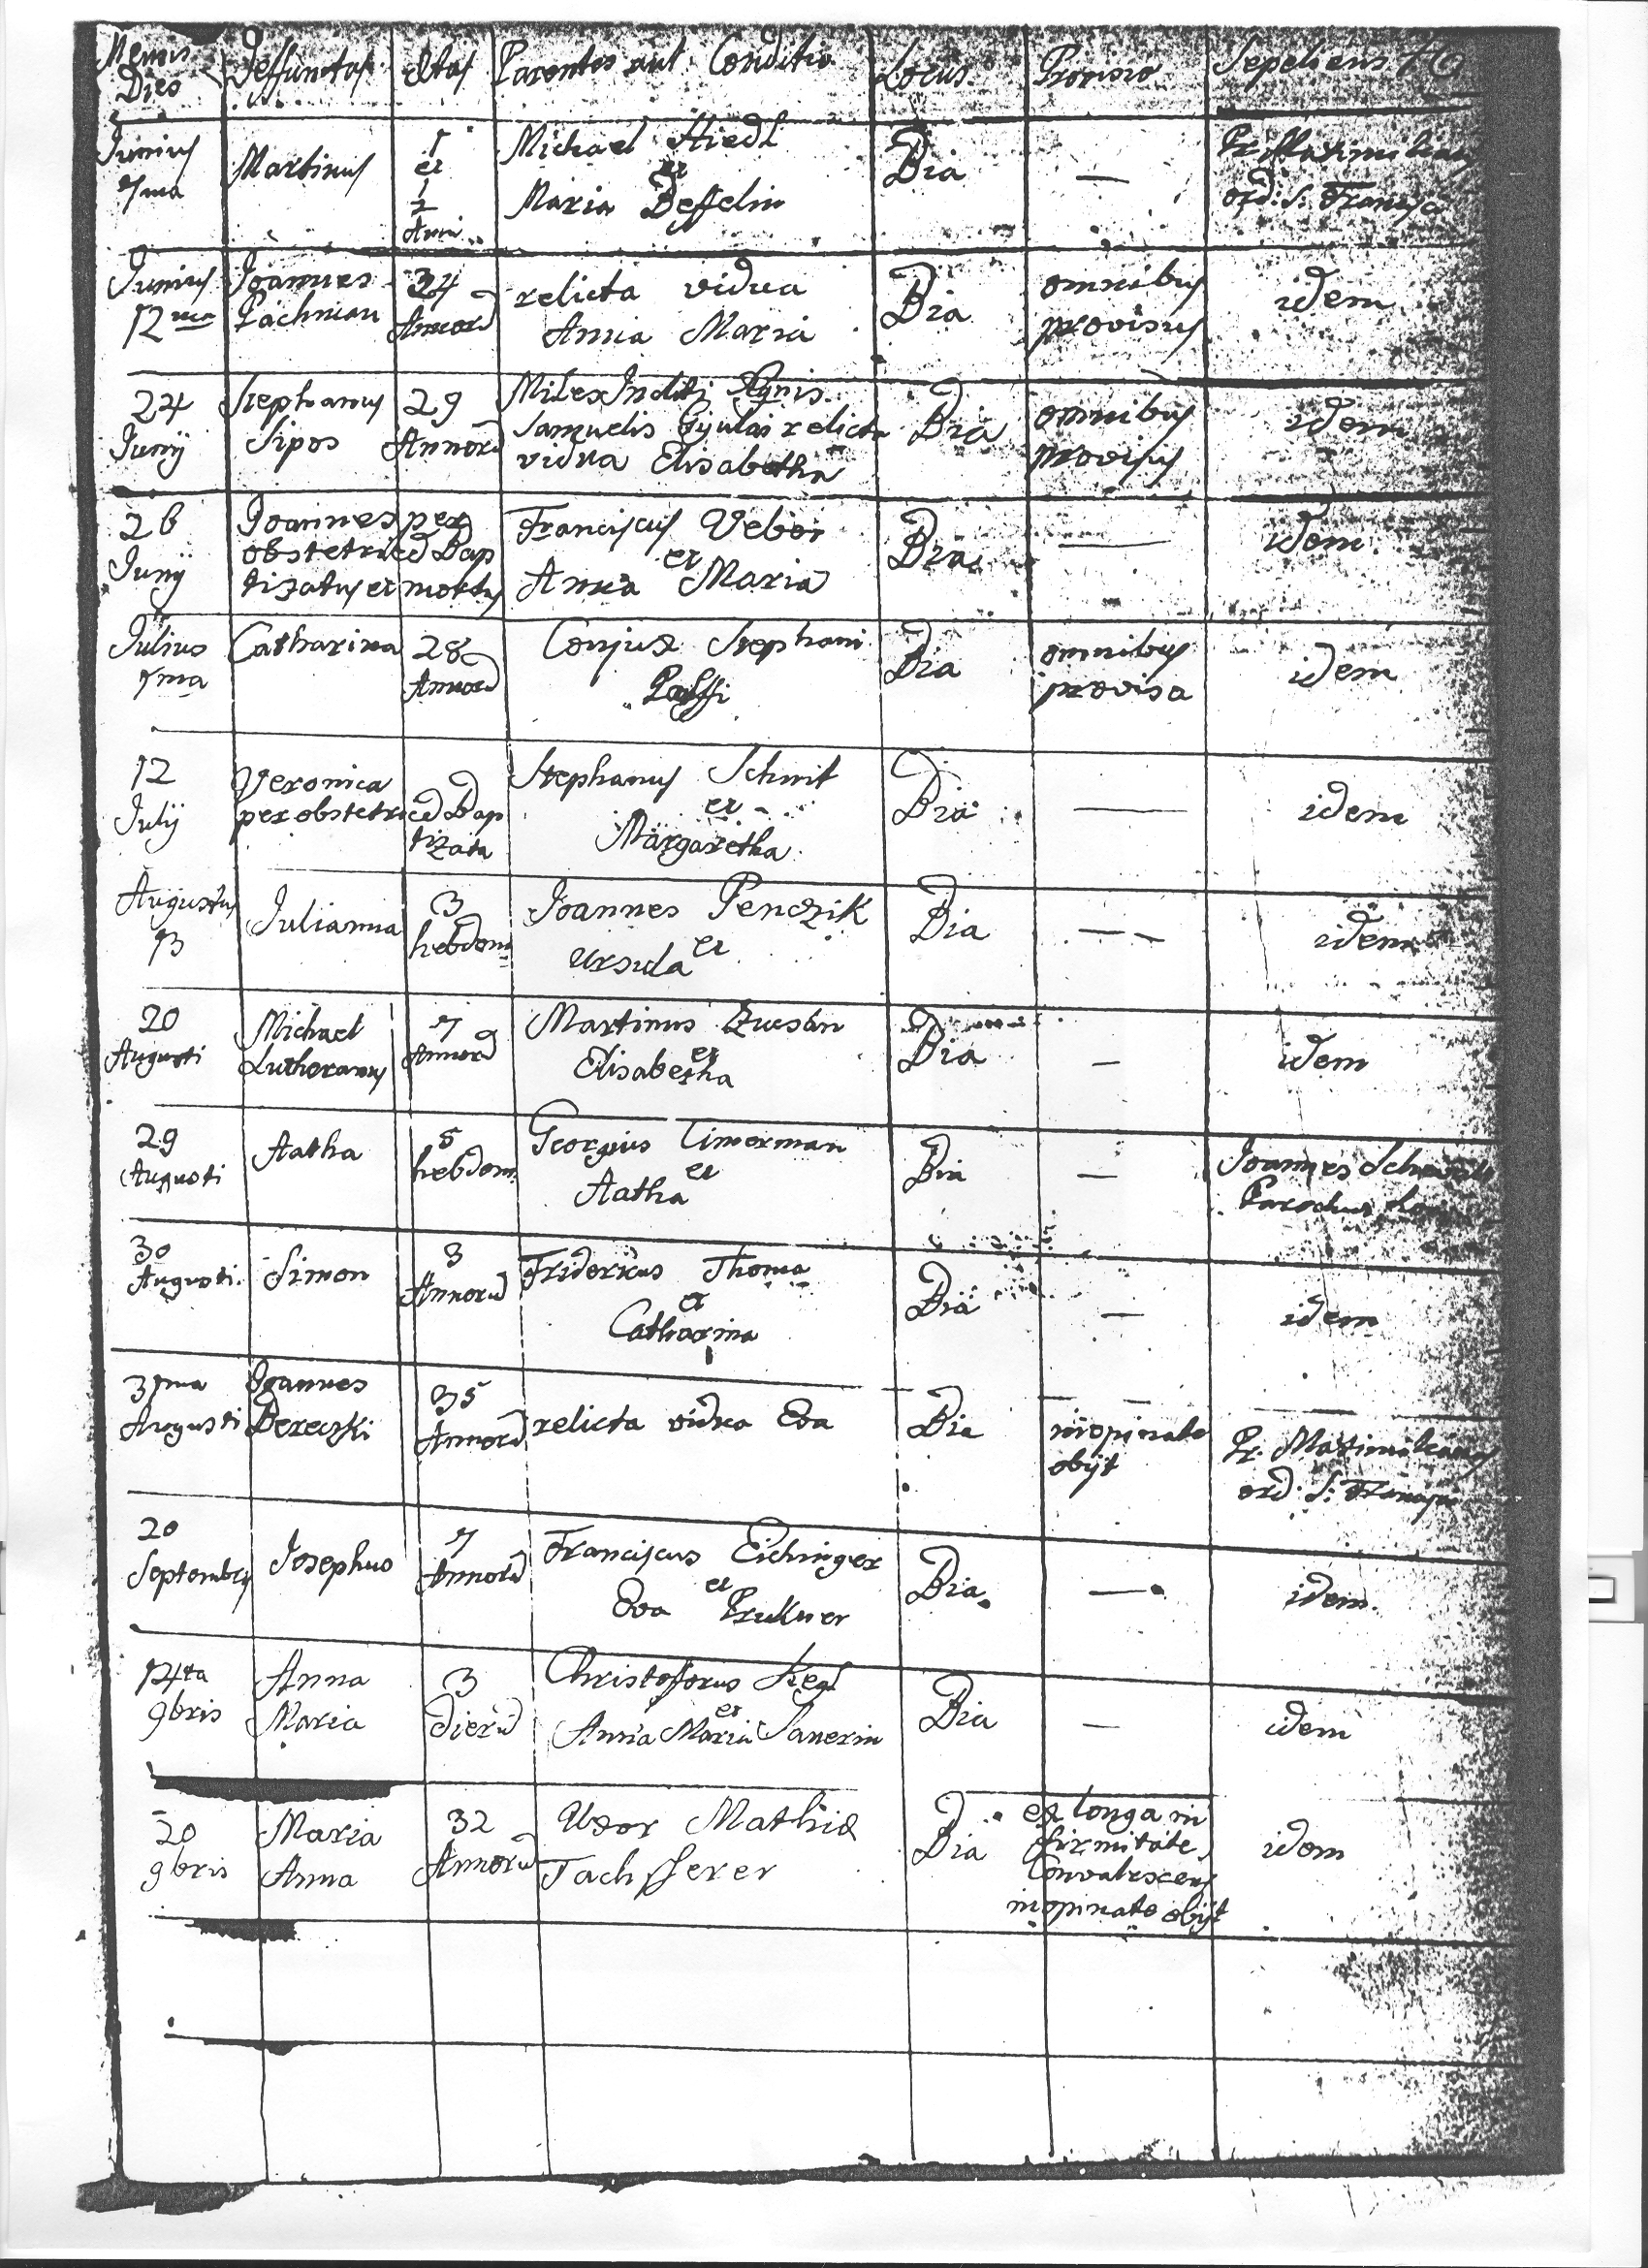 Mensis Dies Deffunctus Ætas Parentes aut Conditio Locus Provisio Sepeliens
Junius Martinus 1 Michael Hiedl Dia — Pr. Maximilianus
7ma et et ord: S. Francisci
½ Maria Desselin
Anni
Junius Joannes 34 relicta vidua Dia omnibus idem
12ma Pachman Annorū Anna Maria provisus
24 Stephanus 29 Miles Incliti Rgnis Dia omnibus idem
Junij Sipos Annorū Samuelis Gyulai relicta provisus
vidua Elisabetha
26 Joannes per Franciscus Veber Dia — idem
Junij obstetricē Bap et
tizatus et mortus Anna Maria
Julius Catharina 28 Conjux Stephani Dia omnibus idem
7ma Annorū Palffi provisa
12 Veronica Stephanus Schmit Dia — idem
Julij per obstetricē Bap et
tizata Margaretha
Augustus Julianna 3 Joannes Penczik Dia — idem
13 hebdom et
Ursula
20 Michael 7 Martinus Zucsán Dia — idem
Augusti Lutheranus Annorū et
Elisabetha
29 Aatha 5 Georgius Cimerman Dia — Joannes
Augusti hebdom. et Parochus
Aatha
30 Simon 3 Fridericus Thoma Dia — idem
Augusti. Annorū et
Catharina
31ma Joannes 35 relicta vidua Eva Dia inopinate Pr. Maximilianus
Augusti Bereczki Annorū obijt ord: S: Francisci
20 Josephus 7 Franciscus Eichinger Dia — idem.
Septembris Annorū et
Eva Prukner
14ta Anna 3 Christofforus Kegl Dia — idem
9bris Maria dierū et
Anna Maria Sanerin
20 Maria 32 Uxor Mathiæ Dia ex longa in idem
9bris Anna Annorū Tachsserer firmitate
Convalescens
inopinate obijt